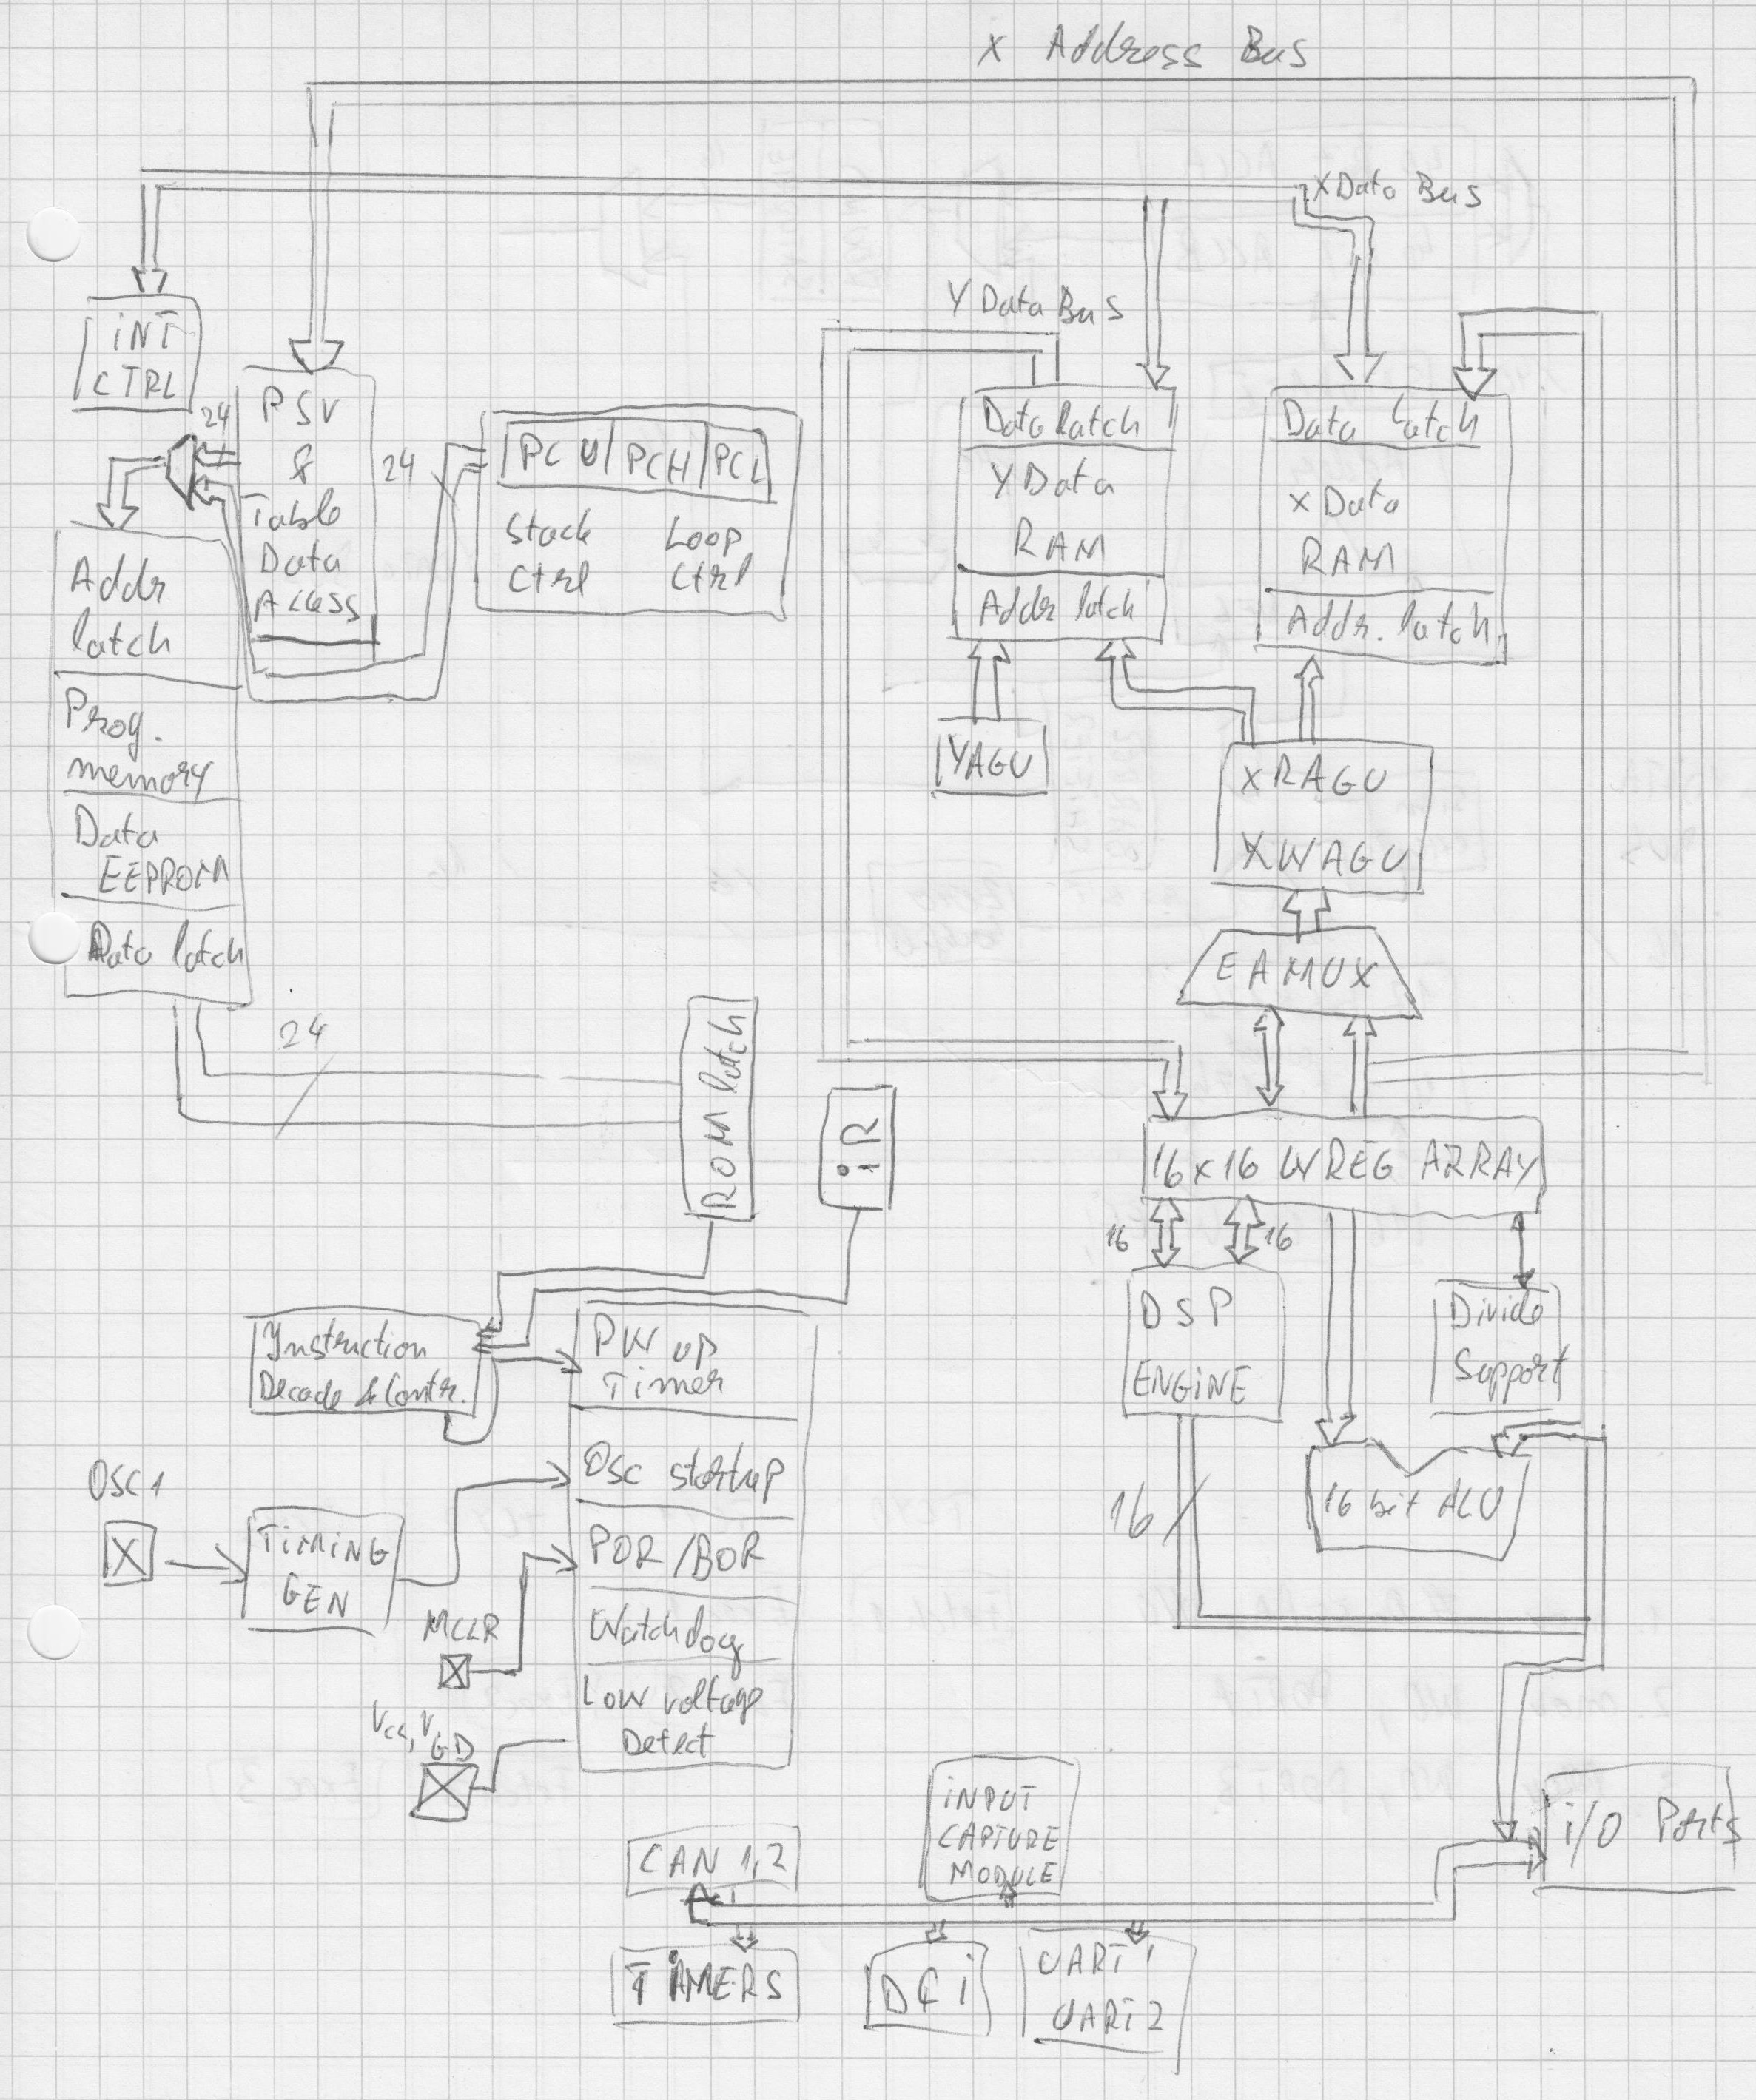 X Address Bus
XData Bus
Y Data Bus
iNT
CTRL
24
PSV
&
Table
Data
ACESS
24
PCU PCH PCL
Stack Loop
Ctrl Ctrl
Data latch
Y Data
RAM
Addr latch
Data latch
X Data
RAM
Addr. latch
Addr
latch
Prog.
memory
Data
EEPROM
Data latch
24
YAGU
XRAGU
XWAGU
EAMUX
ROM latch
iR
16x16 WREG ARRAY
16
16
DSP
ENGiNE
Divide
Support
16 bit ALU
16
Instruction
Decode & Contr.
PW up
Timer
Osc startup
POR/BOR
Watchdog
Low voltage
Detect
OSC1
X
TiMiNG
GEN
MCLR
Vcc, VGD
iNPUT
CAPTURE
MODULE
i/O Ports
CAN 1,2
TiMERS
DCi
UART 1
UART 2